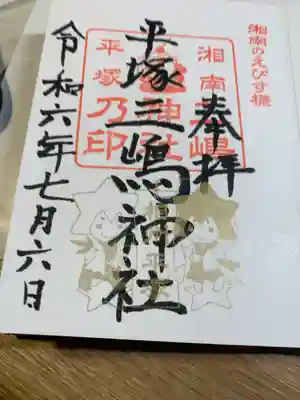 湘南のえびす様
奉拝
平塚三嶋神社
令和六年七月六日
湘南
平塚
乃印